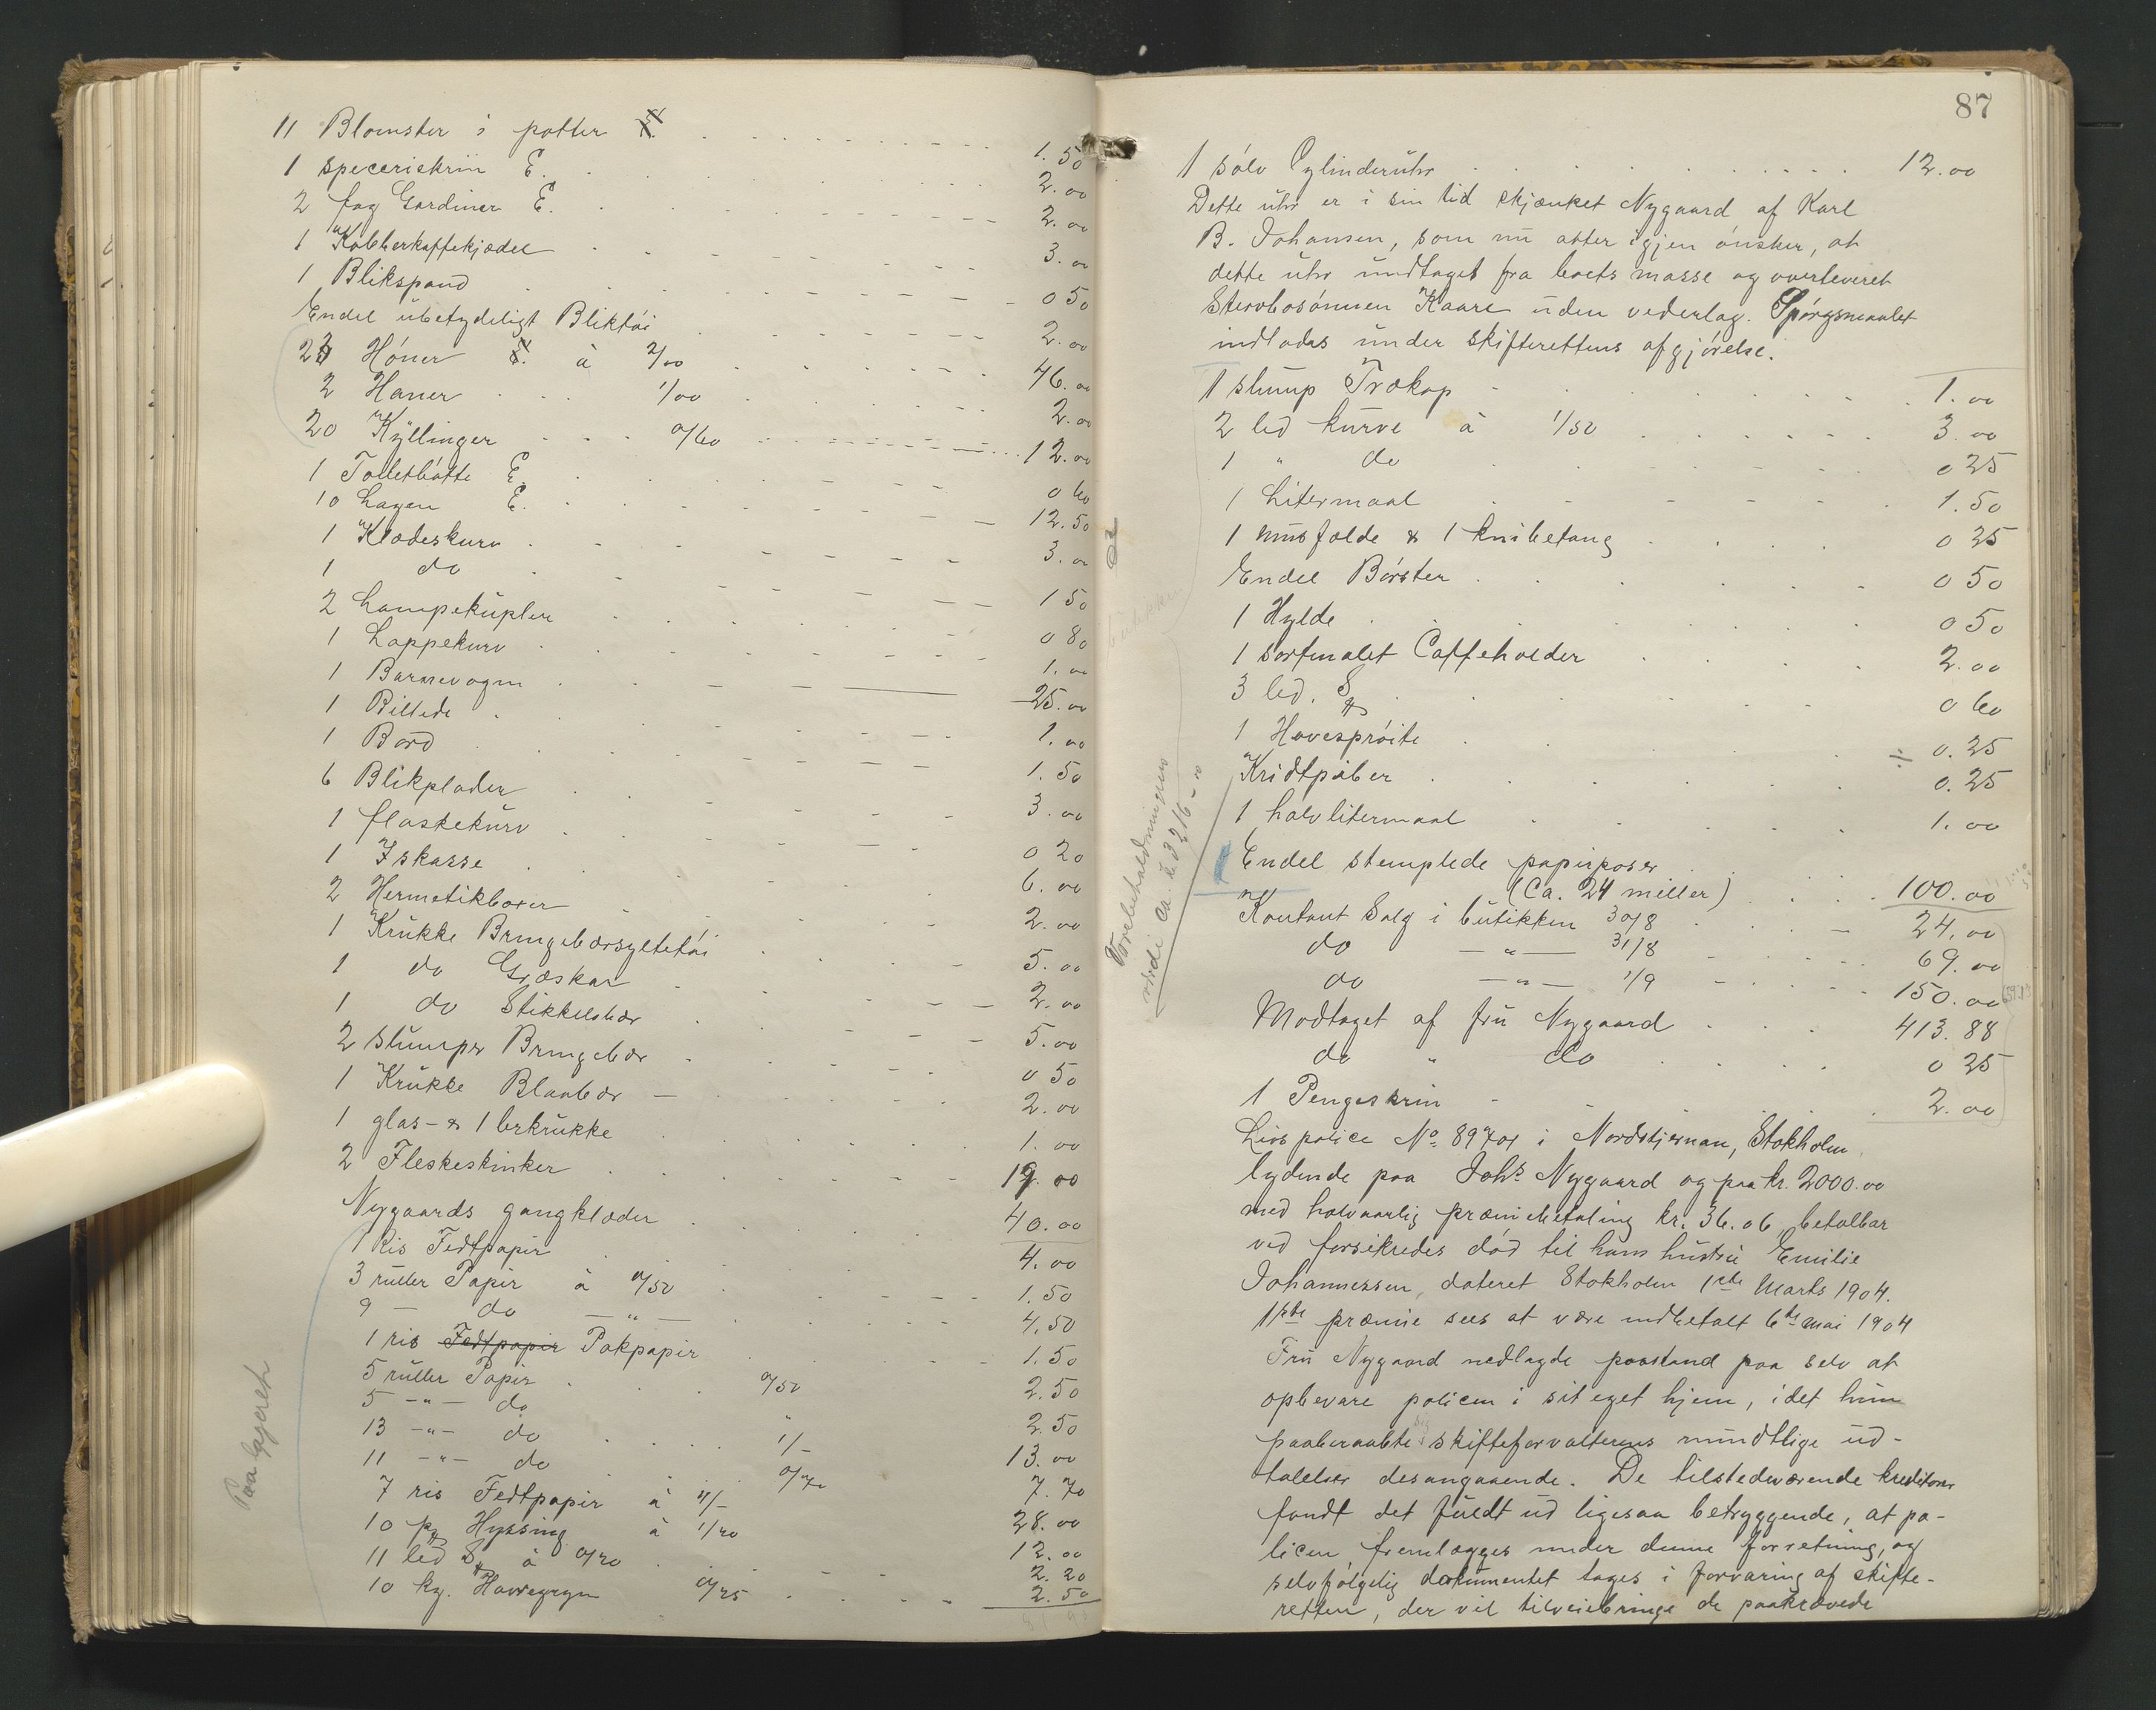 11 Blomster i potter E. 1.50
1 speceriskrin E. 2.00
2 fag Gardiner E. 2.00
1 Kobberkaffekjædel 3.00
1 Blikspand 0 50
Endel ubetydeligt Bliktøi 2.00
23 Høner E. à 2/00 46.00
2 Haner 1/00 2.00
20 Kyllinger 0/60 12.00
1 Toiletbøtte E. 0 60
10 Lagen E. 12.50
1 Klædeskurv 3.00
1 do 1 50
2 Lampekupler 0 80
1 Lappekurv 1.00
1 Barnevogn 25.00
1 Billede 1.00
1 Bord 1.50
6 Blikplader 3.00
1 flaskekurv 0 20
1 Iskasse 6.00
2 Hermetikboxer 2.00
1 Krukke Bringebærsyltetøi 5.00
1 do Græskar 2.00
1 do Stikkelsbær 5.00
2 slumper Bringebær 0 50
1 Krukke Blaabær 2.00
1 glas- & 1 lerkrukke 1.00
2 Fleskeskinker 19.00
Nygaards gangklæder 40.00
1 Ris Fedtpapir 4.00
3 ruller Papir à 0/50 1.50
9 — do — " — 4.50
1 ris Fedtpapir Pakpapir 1.50
5 ruller Papir 0/50 2.50
5 -"- do " 2.50
13 -"- do 1/- 13.00
11 -"- do 0/70 7.70
7 ris Fedtpapir à 4/- 28.00
10 pg Hyssing à 1/20 12.00
11 led S à 0/20 2.20
10 kg. Havregryn 0/25 2.50
Paa lageret
87
1 sølv Cylinderuhr 12.00
Dette uhr er i sin tid skjænket Nygaard af Karl
B. Johansen, som nu atter igjen ønsker, at
dette uhr undtaget fra boets masse og overleveret
Stervbosønnen Kaare uden vederlag. Spørgsmaalet
indlades under skifterettens afgjørelse.
1 slump Trækop 1.00
2 led kurve à 1/50 3.00
1 " do 0 25
1 Litermaal 1.50
1 musfælde & 1 knibetang 0 25
Endel Børster 0 50
1 Hylde 0 50
1 sortmalet Caffeholder 2.00
3 led. S 0 60
1 Havesprøite ÷ 0.25
Kridtpiber 0.25
1 halvlitermaal 1.00
Endel stemplede papirposer
(Ca. 24 miller) 100.00
Kontant Salg i butikken 30/8 24.00
do — " — 31/8 69.00
do — " — 1/9 150.00
Modtaget af fru Nygaard 413.88
do " do 0 25
1 Pengeskrin 2.00
Varebeholdningens
værdi ca. k. 3216-
Livspolice No. 89701 i Nordstjernan, Stokholm,
lydende paa Johs. Nygaard og paa kr. 2000.00
med halvaarlig præmiebetaling kr. 36.06, betalbar
ved forsikredes død til hans hustru Emilie
Johannessen, dateret Stokholm 1ste Marts 1904.
1ste præmie sees at være indbetalt 6te mai 1904
Fru Nygaard nedlagde paastand paa selv at
opbevare policen i sit eget hjem, idet hun
paaberaabte skifteforvalterens mundtlige ud-
talelser desangaaende. De tilstedeværende kreditorer
fandt det fuldt ud ligesaa betryggende, at po-
licen fremlægges under denne forretning, og
selvfølgelig dokumentet tages i forvaring af skifte-
retten, der vil tilveiebringe de paakrævede